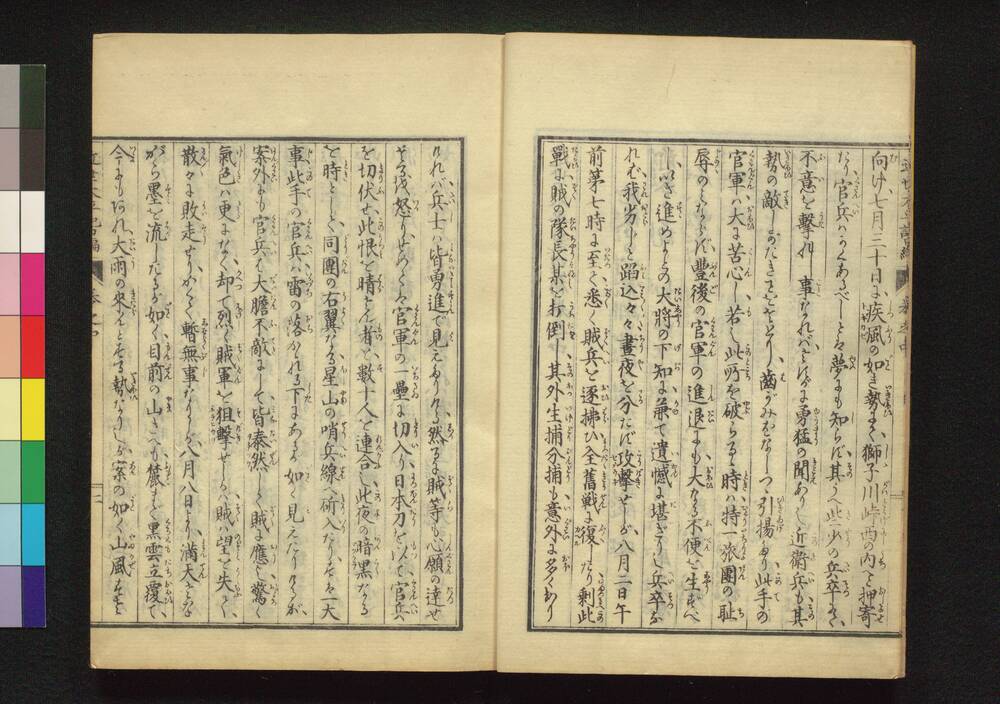 向け、七月三十日に疾風の如き勢にて、獅子川峠西の内と押寄
たり、官兵ハかくあるべしとハ夢にも知らず、其うへ些少の兵卒にて、
不意を撃れし事なれバ、さしもに勇猛の聞ありし近衛兵も、其
勢の敵しがたきをさとり、齒がみをなしつつ引揚たり、此手の
官軍ハ大に苦心し、若し此所を破らるる時ハ、特一張團の恥
辱のみならず、豐後の官軍の進退にも大なる不便を生ずべ
し、いざ進めよとの大將の下知に、兼て遺憾に堪ざりし兵卒な
れば、我劣らじと蹈込々々、晝夜を分たず攻撃せしが、八月二日午
前第七時に至て、悉く賊兵を逐拂ひ、全舊戰に復したり、剩此
戰に賊の隊長某を打倒し、其外生捕分捕も意外に多くあり
けれバ、兵士ハ皆勇進で見えたりけり、然るに賊等も心願の達せ
ざるを怒り、官軍の一壘に切入り、日本刀を以て官兵
を切伏せ、此恨を晴さんと、者ども數十人を連合し、此夜の暗黒なる
を時として、同團の右翼なる星山の哨兵線へ斫入たり、其一大
事、此手の官兵ハ、雷の落かかれる下にあるが如く見えたりけるが、
案外にも官兵も大膽不敵にして、皆泰然として賊に應じ、驚く
氣色ハ更になく、却て烈く賊軍を狙撃せしかバ、賊ハ望を失て
散々に敗走せり、かくて暫無事なりしが、八月八日にハ、滿天さな
がら墨を流したるが如く、目前の山さへも朧にて、黒雲立覆て、
今にもあれ大雨の來んとする勢なりしが、案の如く山風さそ